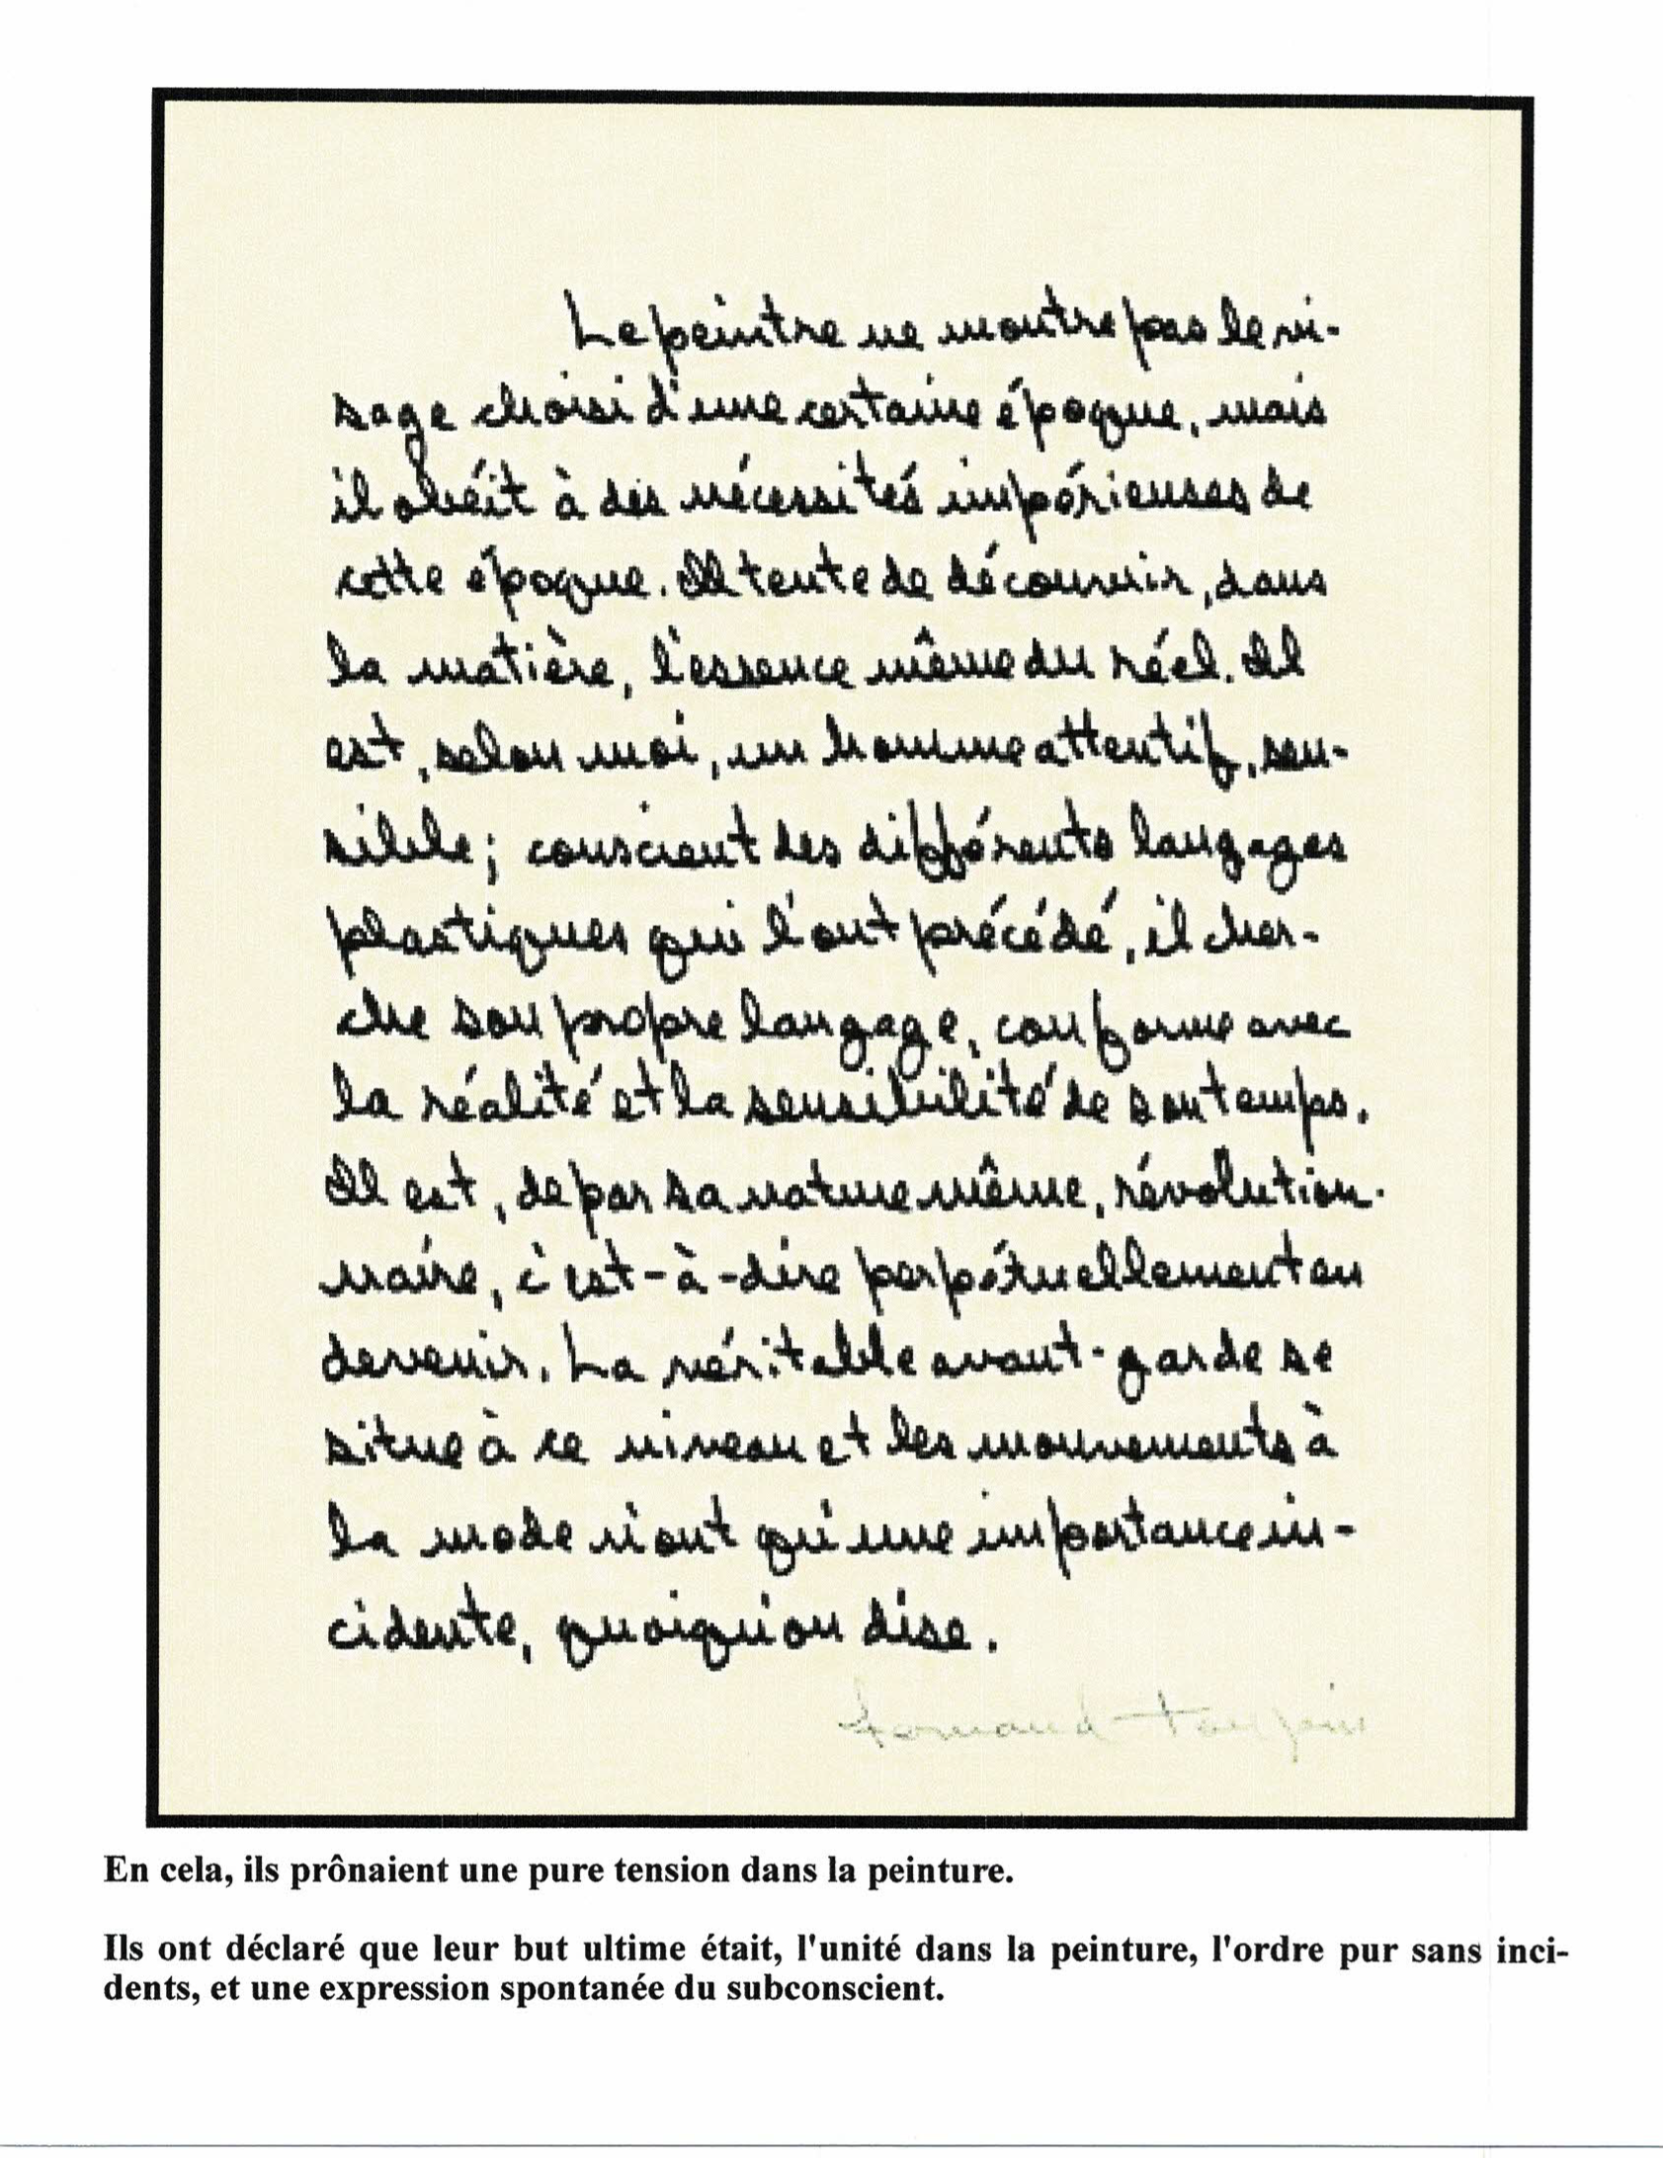 Le peintre ne montre pas le vi-
sage choisi d'une certaine époque, mais
il obéit à des nécessités impérieuses de
cette époque. Il tente de découvrir, dans
la matière, l'essence même du réel. Il
est, selon moi, un homme attentif, sen-
sible; conscient des différents langages
plastiques qui l'ont précédé, il cher-
che son propre langage, conforme avec
la réalité et la sensibilité de son temps.
Il est, de par sa nature même, révolution-
naire, c'est-à-dire perpétuellement en
devenir. La véritable avant-garde se
situe à ce niveau et les mouvements à
la mode n'ont qu'une importance in-
cidente, quoiqu'on dise.
Fernand Toupin
En cela, ils prônaient une pure tension dans la peinture.
Ils ont déclaré que leur but ultime était, l'unité dans la peinture, l'ordre pur sans inci-
dents, et une expression spontanée du subconscient.